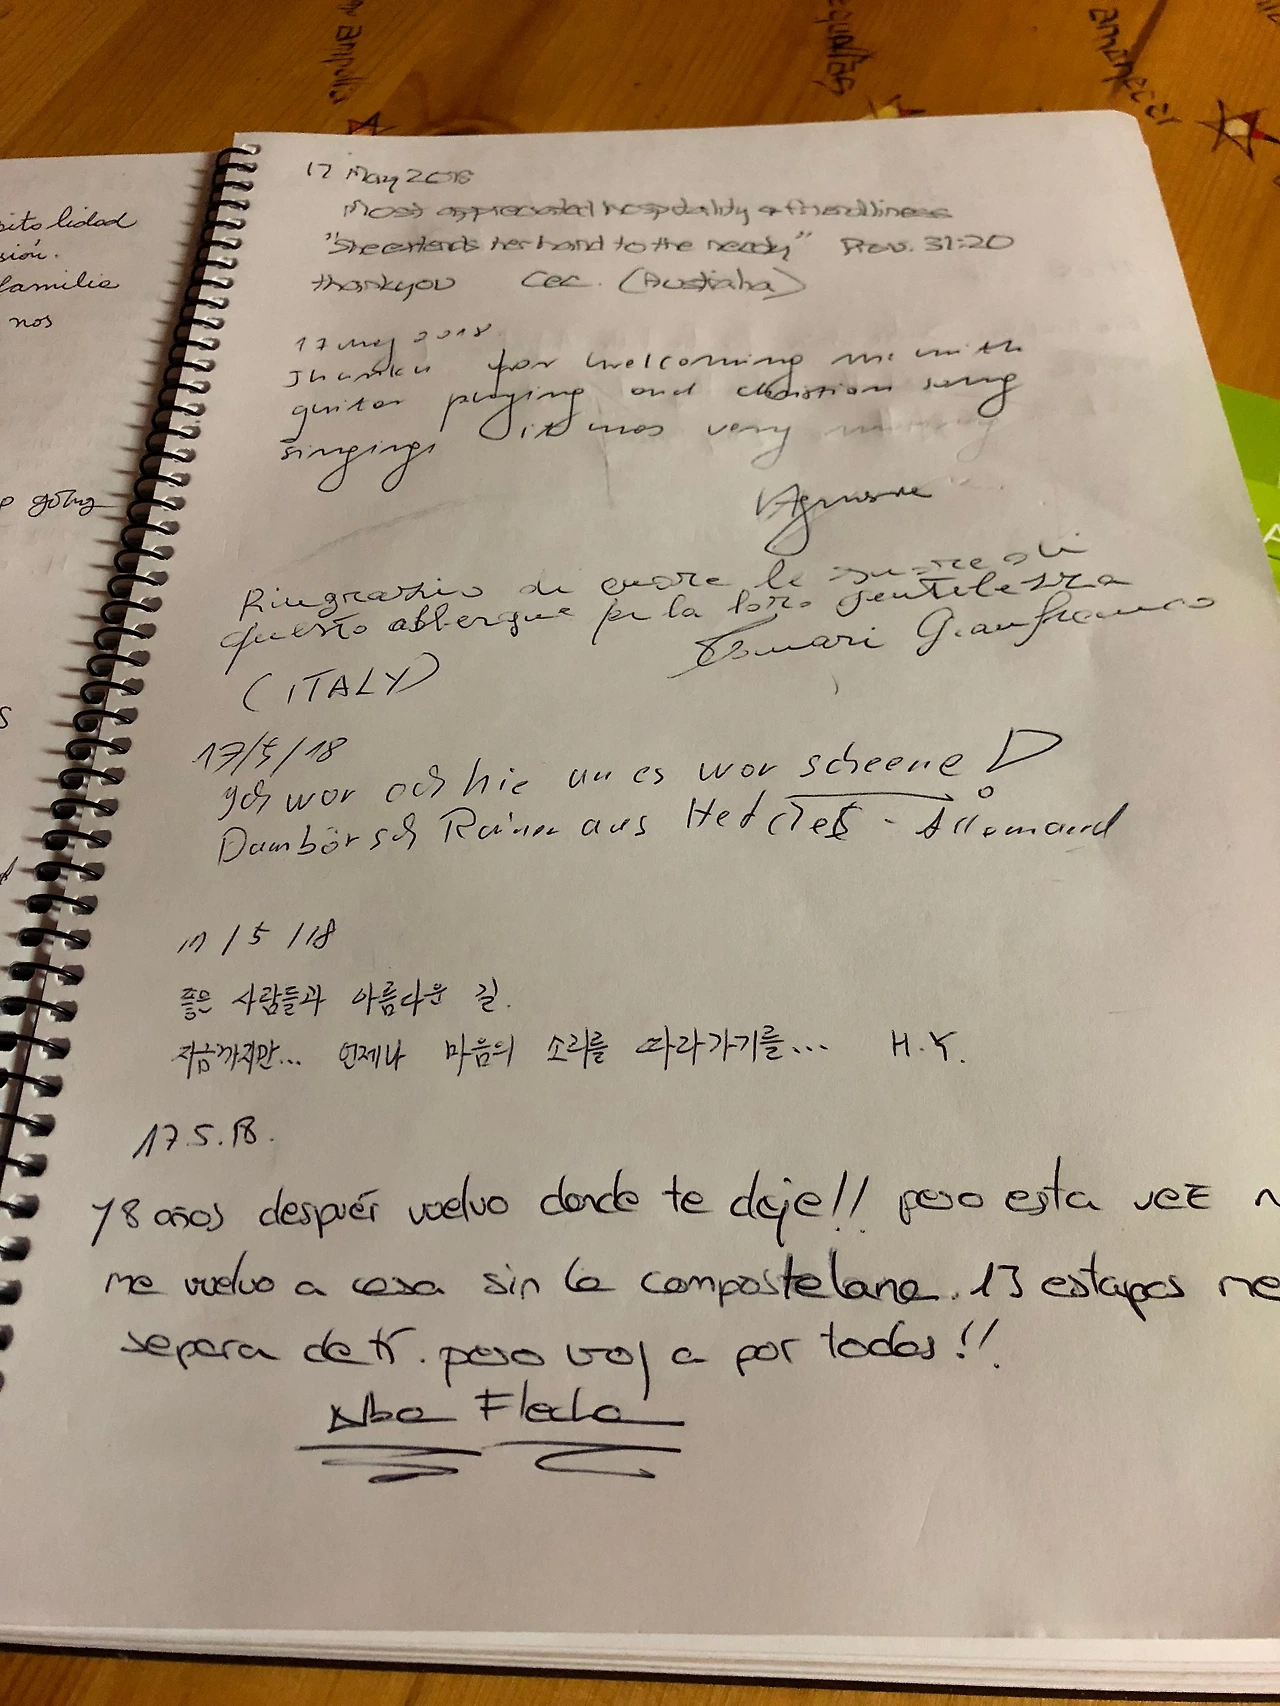 pitalidad
sión.
familia
nos
going
amanecer
17 May 2018
Most appreciated hospitality & friendliness
"She extends her hand to the needy" Prov. 31:20
thankyou Cec. (Australia)
17 May 2018
for welcoming me with
guitar playing and christian song
singing it was very
Ringrazio di cuore le suore di
questo albergue per la loro gentilezza
Gianfranco
(ITALY)
17/5/18
Ich wor och hie un es wor scheene
Rainer aus - Allemand
17/5/18
좋은 사람들과 아름다운 길.
지금까지만... 언제나 마음의 소리를 따라가기를... H.Y.
17.5.18.
18 años después vuelvo donde te deje!! pero esta vez n
me vuelvo a casa sin la compostelana. 13 estapas me
separa de ti. pero voy a por todas!!
Alba Flecha